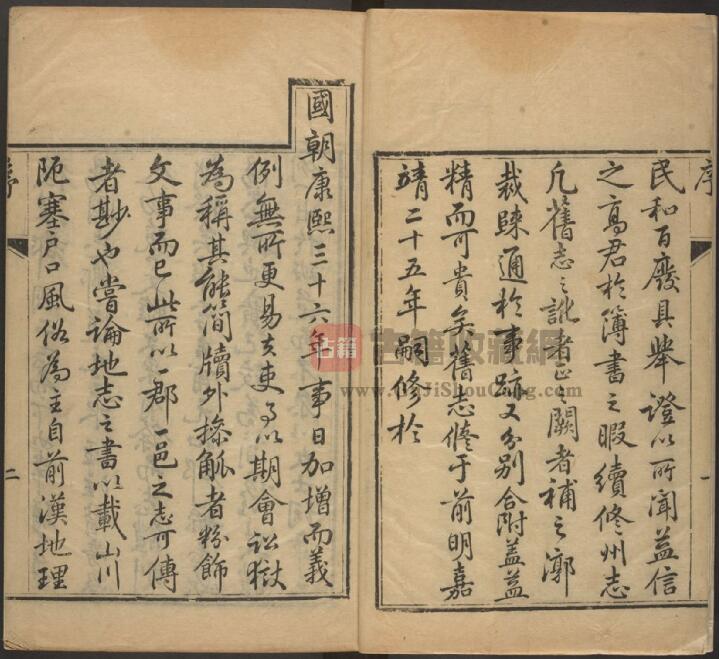 序
民和百廢具舉證以所聞益信
之高君於簿書之暇續修州志
凡舊志之訛者正之闕者補之郭
裁踈通於事跡又分別合附蓋益
精而可貴矣舊志修于前明嘉
靖二十五年嗣修於
一
國朝康熙三十六年事日加增而義
例無所更易夫吏多以期會訟獄
為稱其能簡牘外操觚者粉飾
文事而已此所以一郡一邑之志可傳
者尠也嘗論地志之書以載山川
阨塞戶口風俗為主自前漢地理
序
二
古籍
古籍收藏網
GuJiShouCang.com